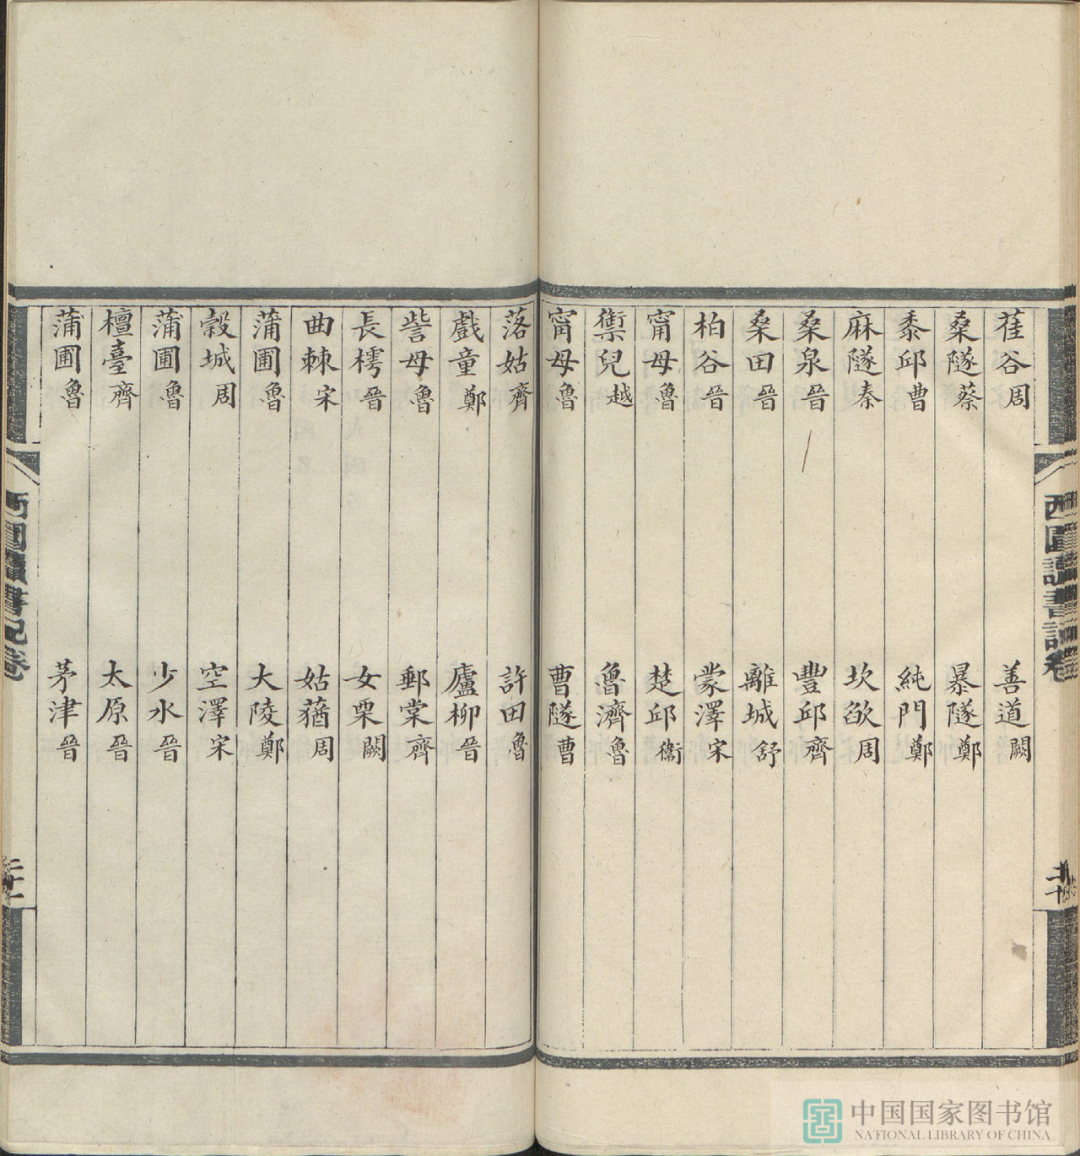 西圃讀書記卷
二十
萑谷周　善道闕
桑隧蔡　暴隧鄭
黍邱曹　純門鄭
麻隧秦　坎欿周
桑泉晉　豐邱齊
桑田晉　離城舒
柏谷晉　蒙澤宋
甯母魯　楚邱衞
禦兒越　魯濟魯
甯母魯　曹隧曹
落姑齊　許田魯
戲童鄭　廬柳晉
訾母魯　郵棠齊
長樗晉　女栗闕
曲棘宋　姑蕕周
蒲圃魯　大陵鄭
穀城周　空澤宋
蒲圃魯　少水晉
檀臺齊　太原晉
蒲圃魯　茅津晉
西圃讀書記卷
二十一
中国国家图书馆
NATIONAL LIBRARY OF CHINA